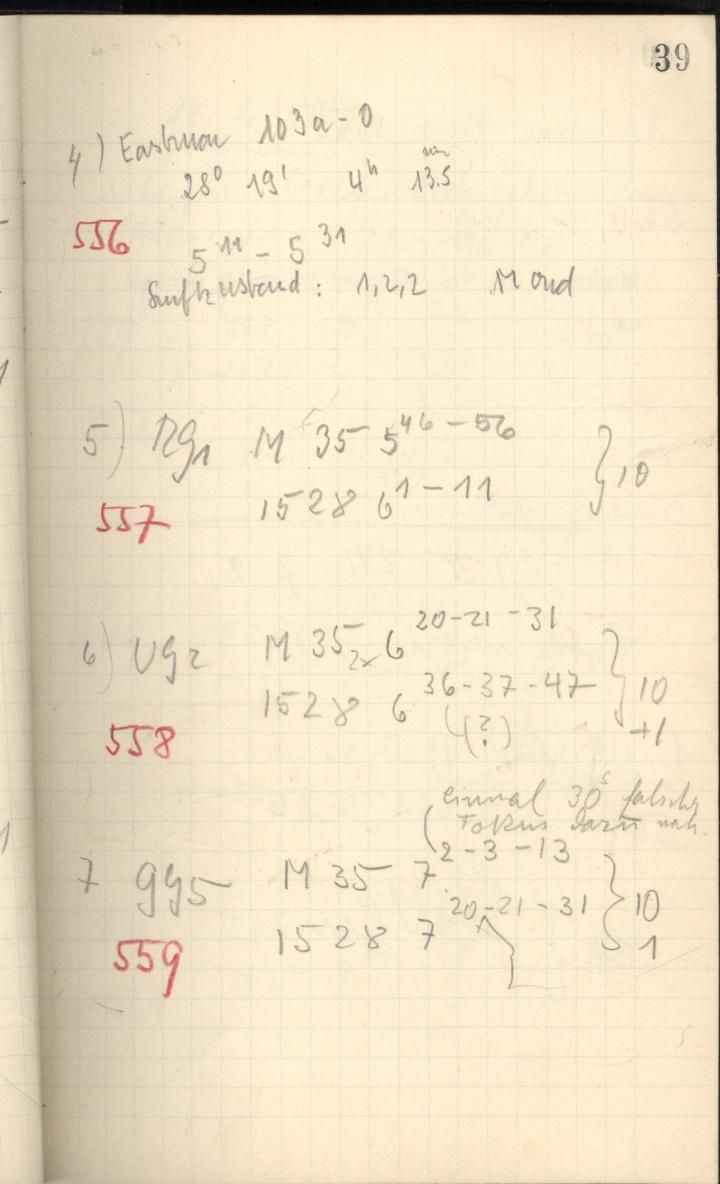 39
4) Eastman 103a-0
min
28° 19' 4h 13.5
556 5 11 - 5 31
Luftzustand: 1,2,2 Mond
5) Rg1 M 35 5 46 - 56
} 10
557 1528 6 1 - 11
6) Ug2 M 35 2x 6 20-21-31
} 10
1528 6 36-37-47
558 (4?) +1
einmal 30s falscher
Fokus dazu
7 gg5 M 35 7 2-3-13
} 10
559 1528 7 20-21-31
1